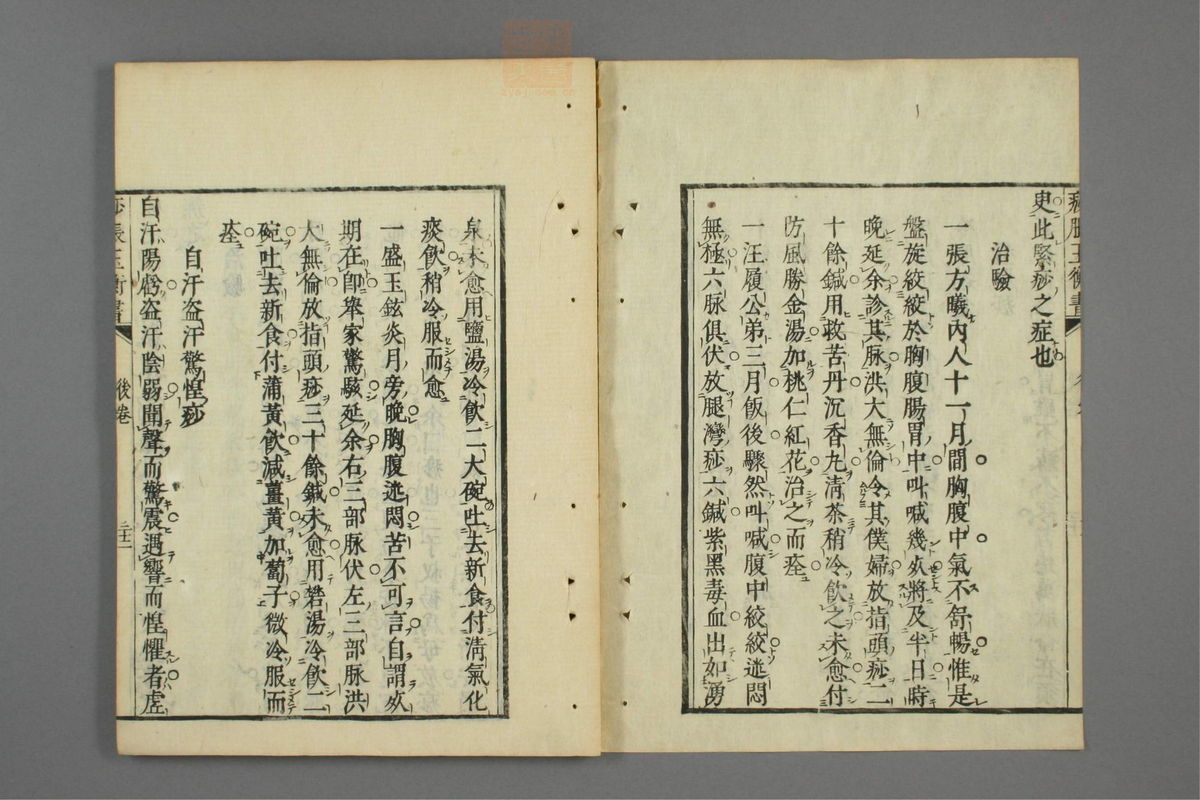 痧脹玉衡書
臾此緊痧之症也
治驗
一張方曦內人十一月間胸腹中氣不舒暢惟是
盤旋絞絞於胸腹腸胃中叫喊幾死將及半日時
晚延余診其脉洪大無倫令其僕婦放指頭痧二
十餘鍼用救苦丹沉香丸清茶稍冷飲之未愈付
防風勝金湯加桃仁紅花治之而痊
一汪履公弟三月飯後驟然叫喊腹中絞絞迷悶
無極六脉俱伏放腿灣痧六鍼紫黑毒血出如湧
泉未愈用鹽湯冷飲二大碗吐去新食付淸氣化
痰飲稍冷服而愈
一盛玉鉉炎月旁晚胸腹迷悶苦不可言自謂死
期在卽舉家驚駭延余右三部脉伏左三部脉洪
大無倫放指頭痧三十餘鍼未愈用礬湯冷飲二
碗吐去新食付蒲黃飲減薑黃加蔔子微冷服而
痊
自汗盜汗驚惶痧
自汗陽虧盜汗陰弱聞聲而驚震遇響而惶懼者虗
痧脹玉衡書
後卷